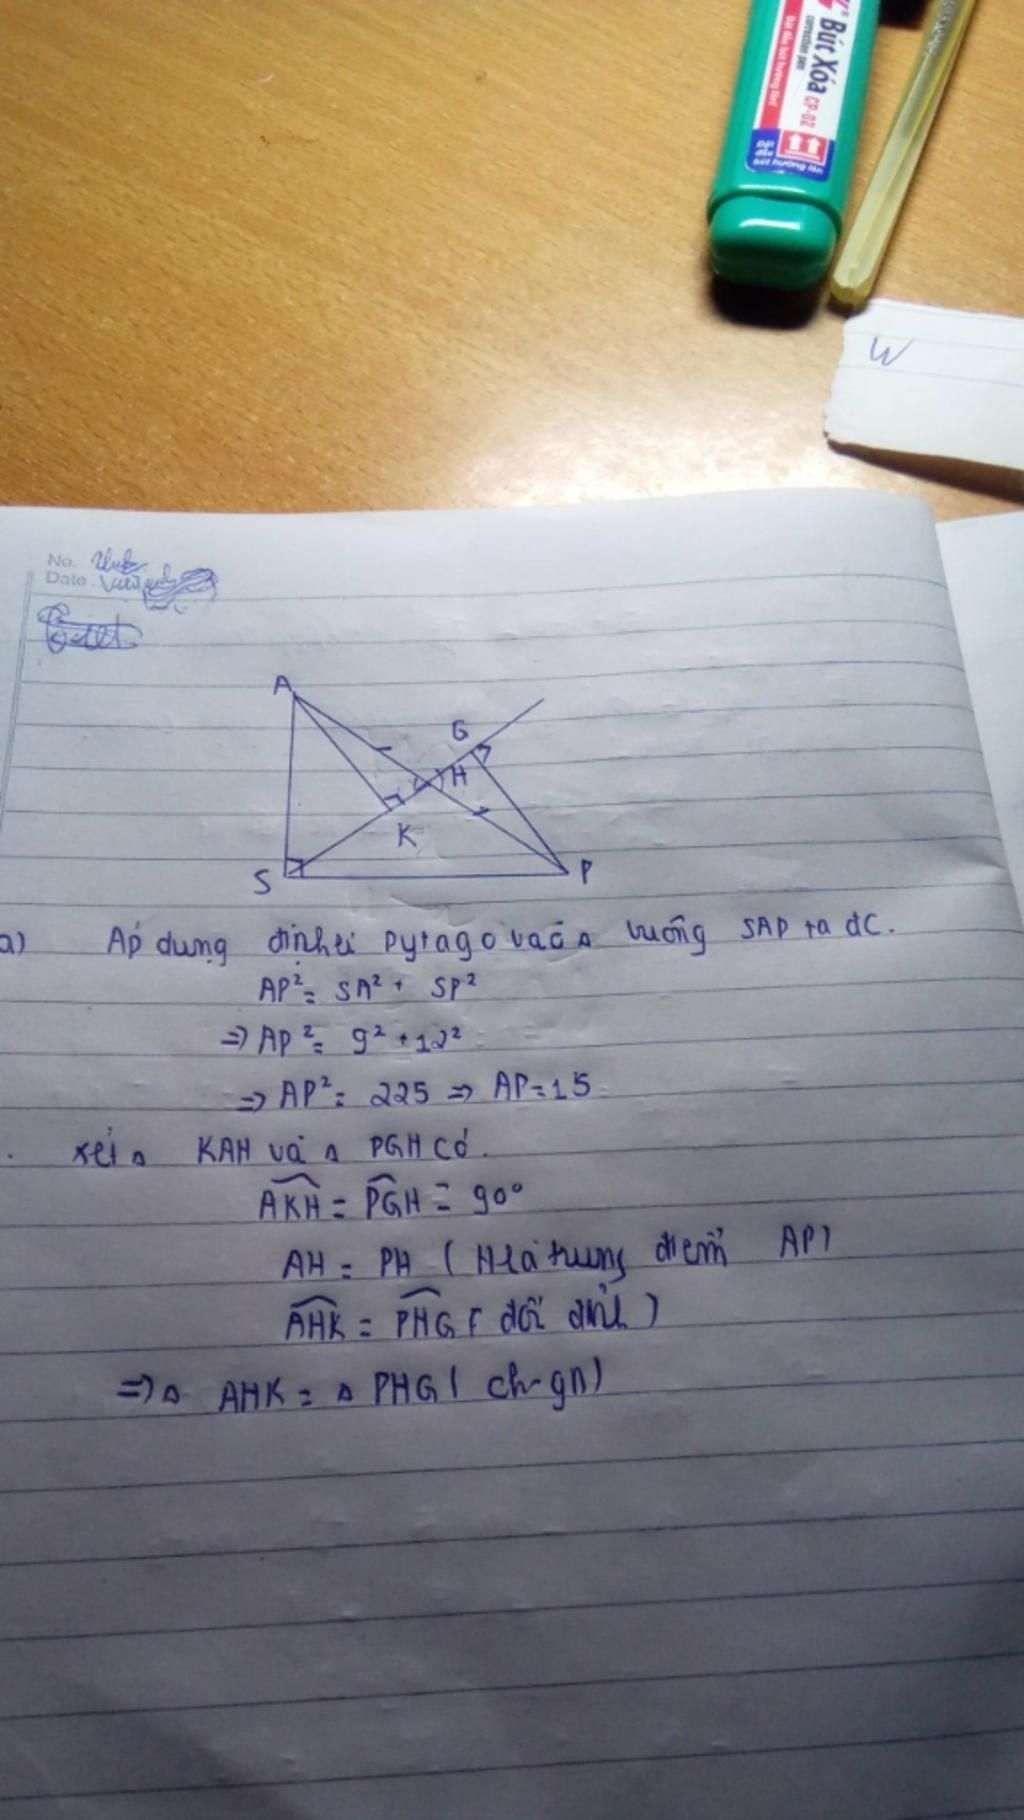 Bút Xóa CP-02
correction pen
W
No.
Date
A
G
H
K
S
P
a) Áp dụng định lí Pytago vào Δ vuông SAP ta đc.
AP² = SA² + SP²
=> AP² = 9² + 12²
=> AP² = 225 => AP = 15
xét Δ KAH và Δ PGH có.
AKH = PGH = 90°
AH = PH ( H là trung điểm AP)
AHK = PHG ( đối đỉnh )
=> Δ AHK = Δ PHG ( ch-gn)